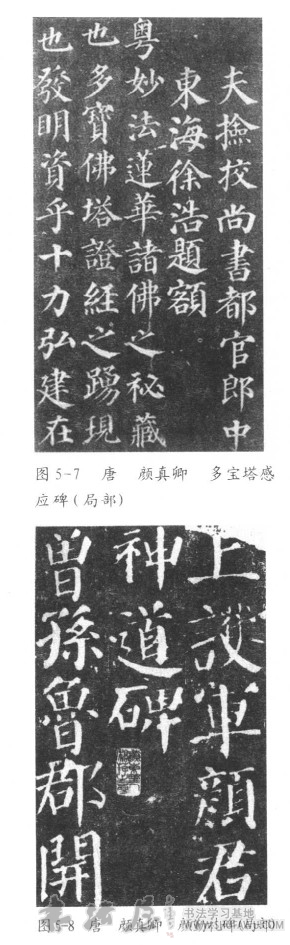 夫撿挍尚書都官郎中
東海徐浩題額
粵妙法蓮華諸佛之祕藏
也多寶佛塔證經之踴現
也發明資乎十力弘建在
图5-7 唐 颜真卿 多宝塔感
应碑(局部)
上護軍顏君
神道碑
曾孫魯郡開
书法学习基地
图5-8 唐 颜真卿